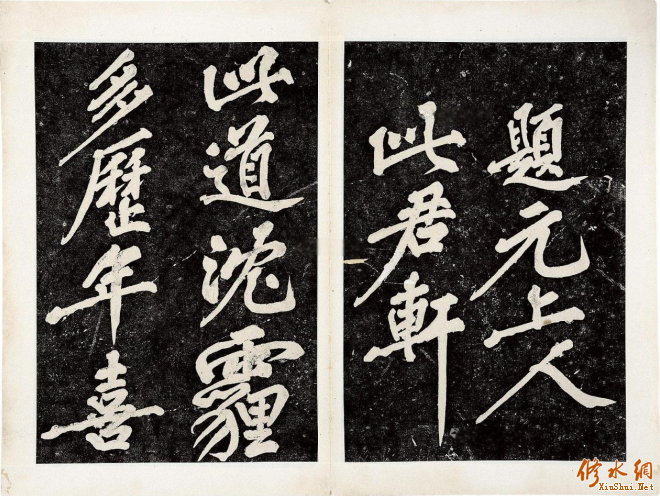 題元上人
此君軒
此道沈霾
多歷年喜
修水網
XiuShui.Net